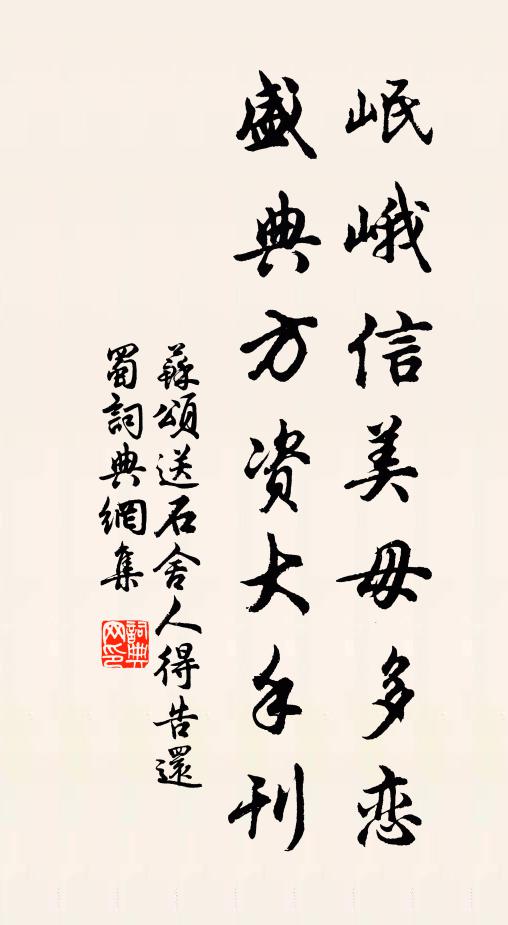 岷峨信美毋多恋
盛典方资大手刊
蘇頌送石舍人得告還
蜀詞典網集
詞典网印